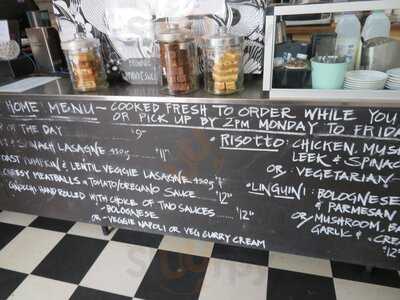 HOME MENU ~ COOKED FRESH TO ORDER WHILE YOU
OR PICK UP BY 2PM MONDAY TO FRIDA
OF THE DAY 9-
LASAGNE 450g 11-
PUMPKIN & LENTIL VEGGIE LASAGNE 450g
CHEESY MEATBALLS & TOMATO/OREGANO SAUCE 12-
GNOCCHI HAND ROLLED WITH CHOICE OF TWO SAUCES 12-
- BOLOGNESE
OR - VEGGIE NAPOLI OR VEG CURRY CREAM
RISOTTO: CHICKEN, MUSH
LEEK & SPINAC
OR: VEGETARIAN
LINGUINI: BOLOGNESE
& PARMESAN
OR/MUSHROOM, BA
GARLIC & CRE